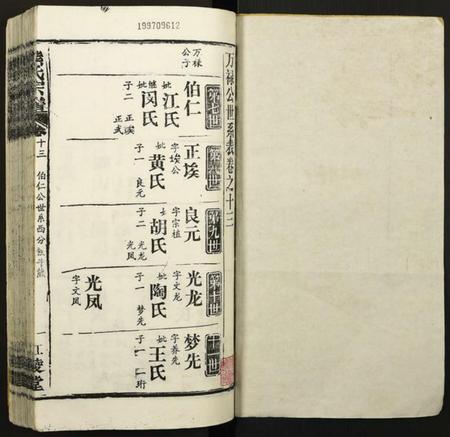 199709612
万禄公世系表卷之十三
第七世
伯仁
万禄公子
妣江氏
继闵氏
子二
正埃
正武
第八世
正埃
字埃公
妣黄氏
子一
良元
第九世
良元
字宗植
妣胡氏
子二
光龙
光凤
第十世
光龙
字文龙
妣陶氏
子一
梦先
光凤
字文凤
十一世
梦先
字养先
妣王氏
子一
一珩
氏宗谱
卷十三
伯仁公世系西分
一
江陵堂